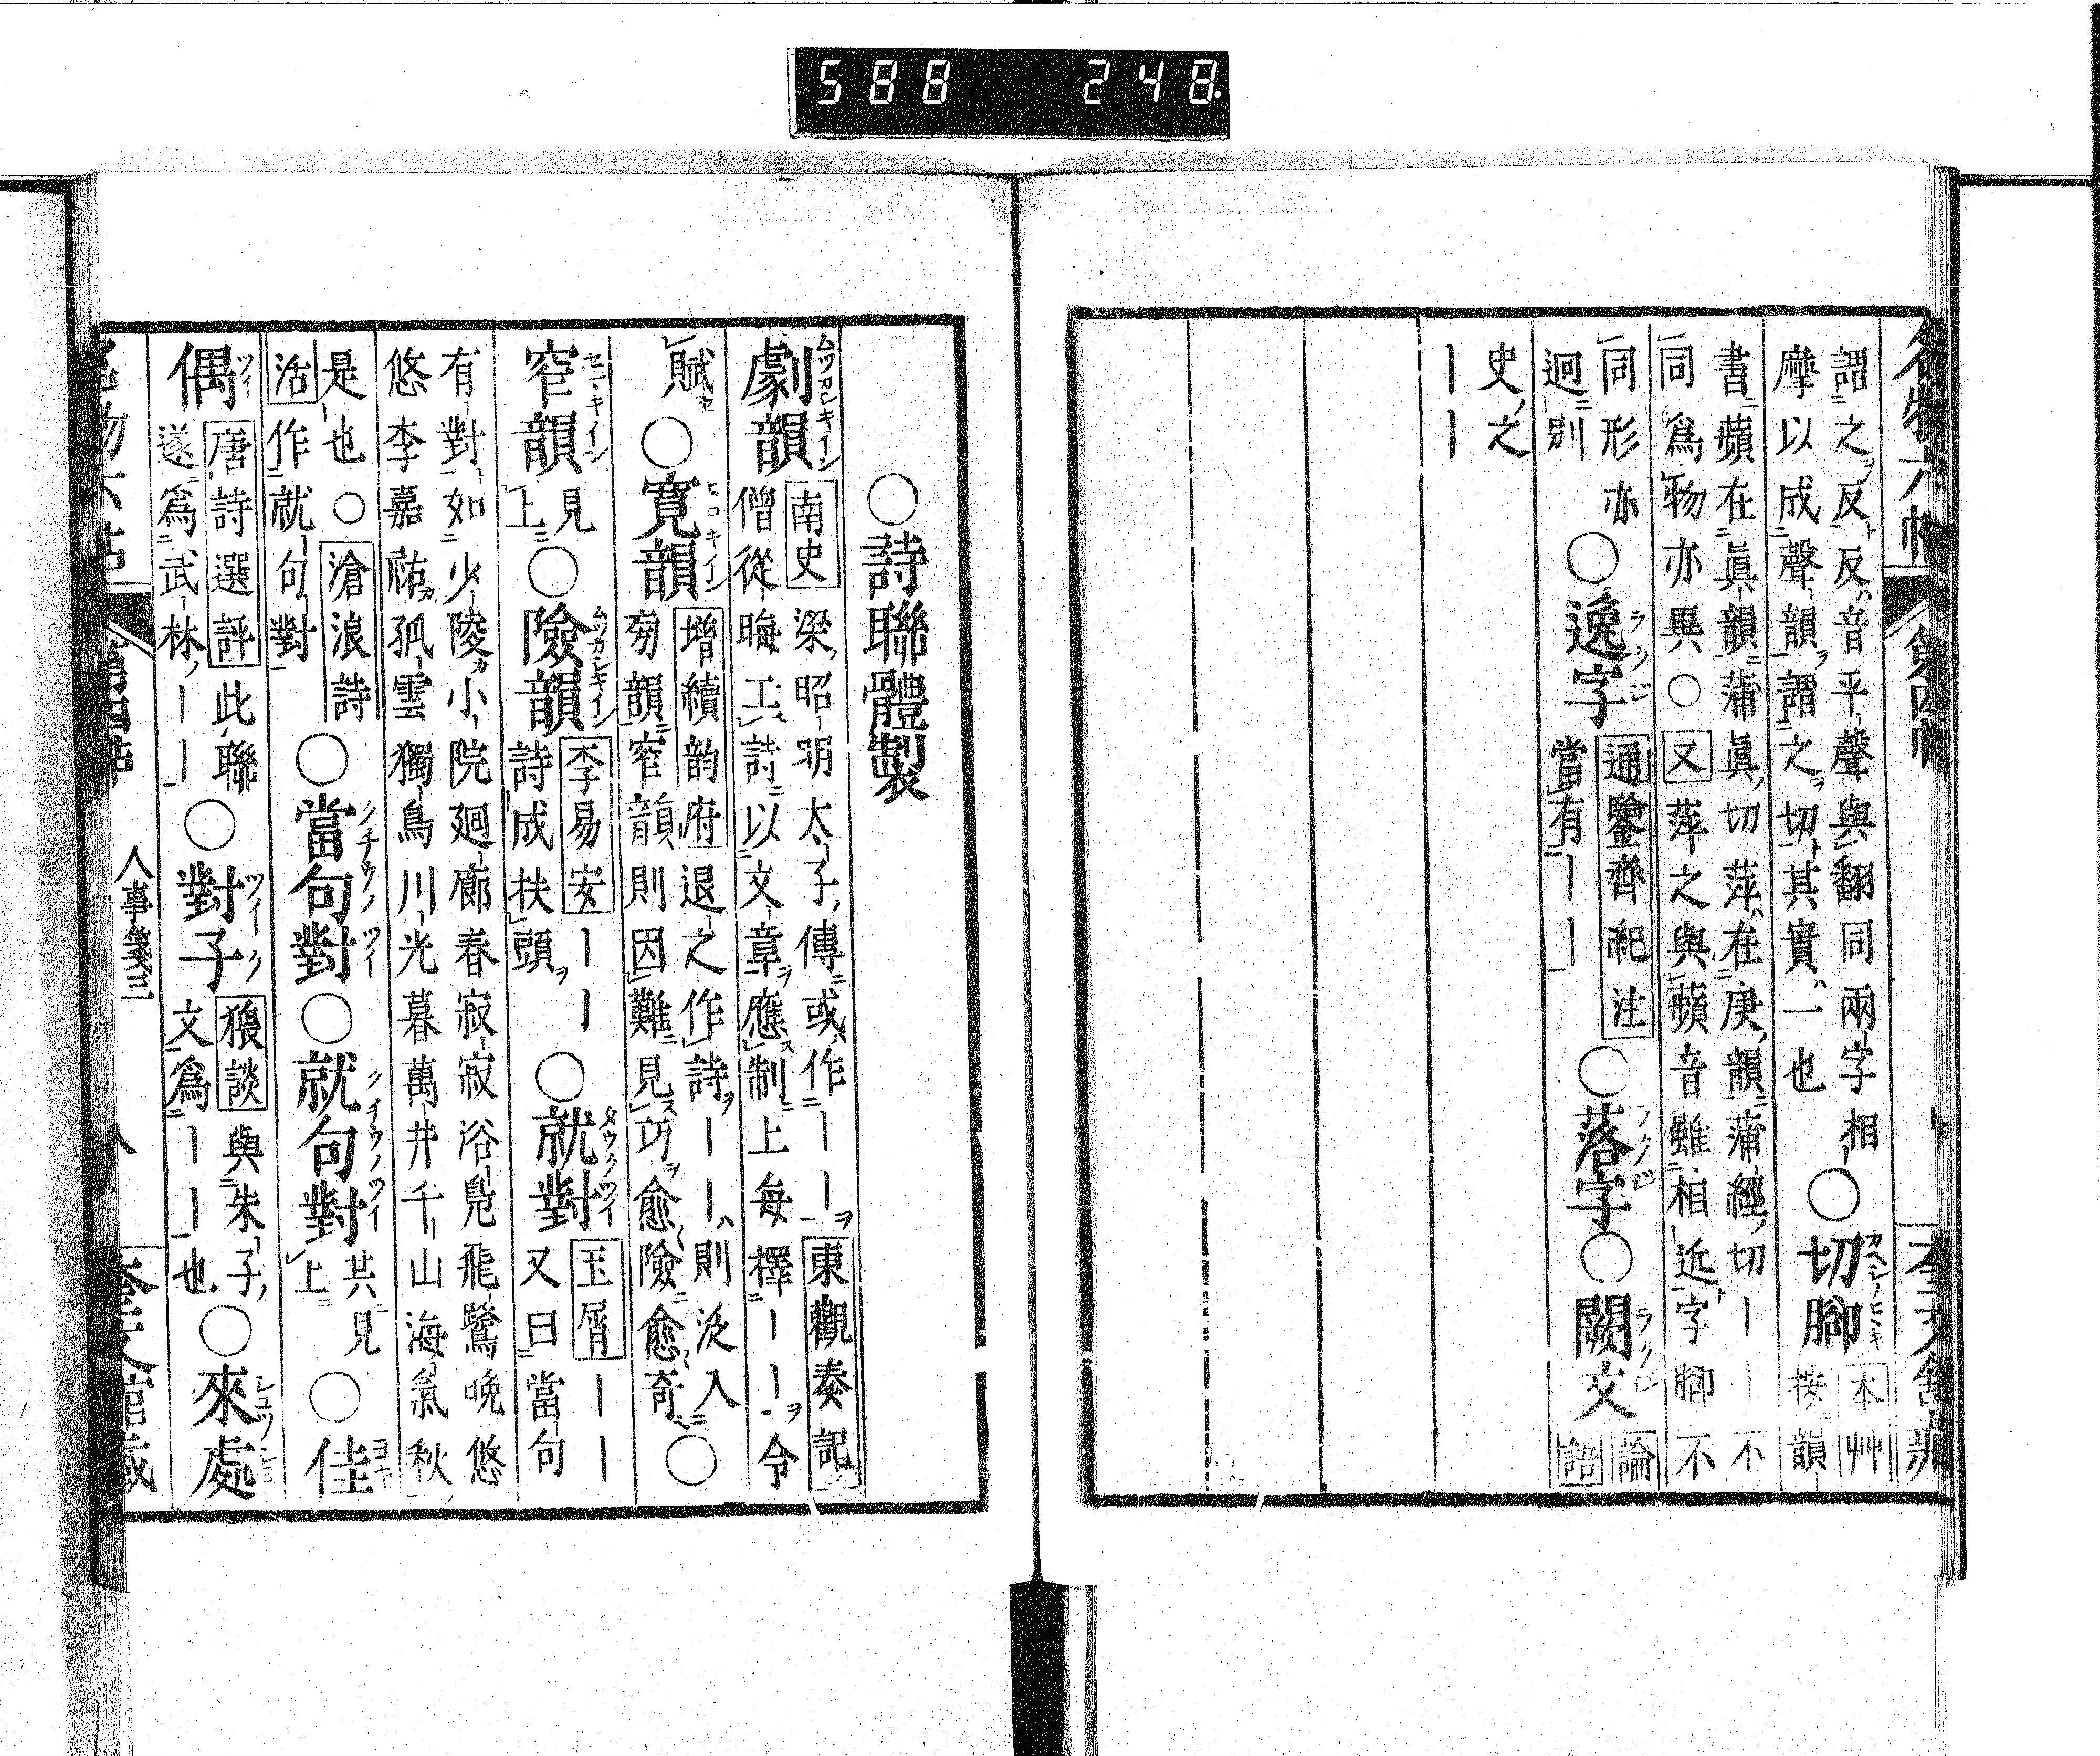 588 248.
名物六帖 第四帖 奎文舘蔵
謂之反反音平聲與翻同兩字相
摩以成聲韻謂之切其實一也
〇切腳 本艸
按韻
書蘋在眞韻蒲眞切萍在庚韻蒲經切丨丨不
同爲物亦異〇又萍之與蘋音雖相近字腳不
同形亦
迥別
〇逸字 通鑒齊紀注
當有丨丨
〇落字〇闕文 論
語
史之
丨丨
〇詩聯體製
劇韻 南史梁昭明太子傳或作丨丨東觀奏記
僧從晦工詩以文章應制上每擇丨丨令
賦〇寬韻 增續韵府退之作詩丨丨則泛入
旁韻窄韻則因難見巧愈險愈奇〇
窄韻 見
上
〇險韻 李易安丨丨
詩成扶頭
〇就對 玉屑丨丨
又曰當句
有對如少陵小院廻廊春寂寂浴鳧飛鷺晚悠
悠李嘉祐孤雲獨鳥川光暮萬井千山海氣秋
是也〇滄浪詩
話作就句對
〇當句對〇就句對 共見
上
〇佳
偶 唐詩選評此聯
遂爲武林丨丨
〇對子 猥談與朱子
文爲丨丨也
〇來處
人事箋三 八